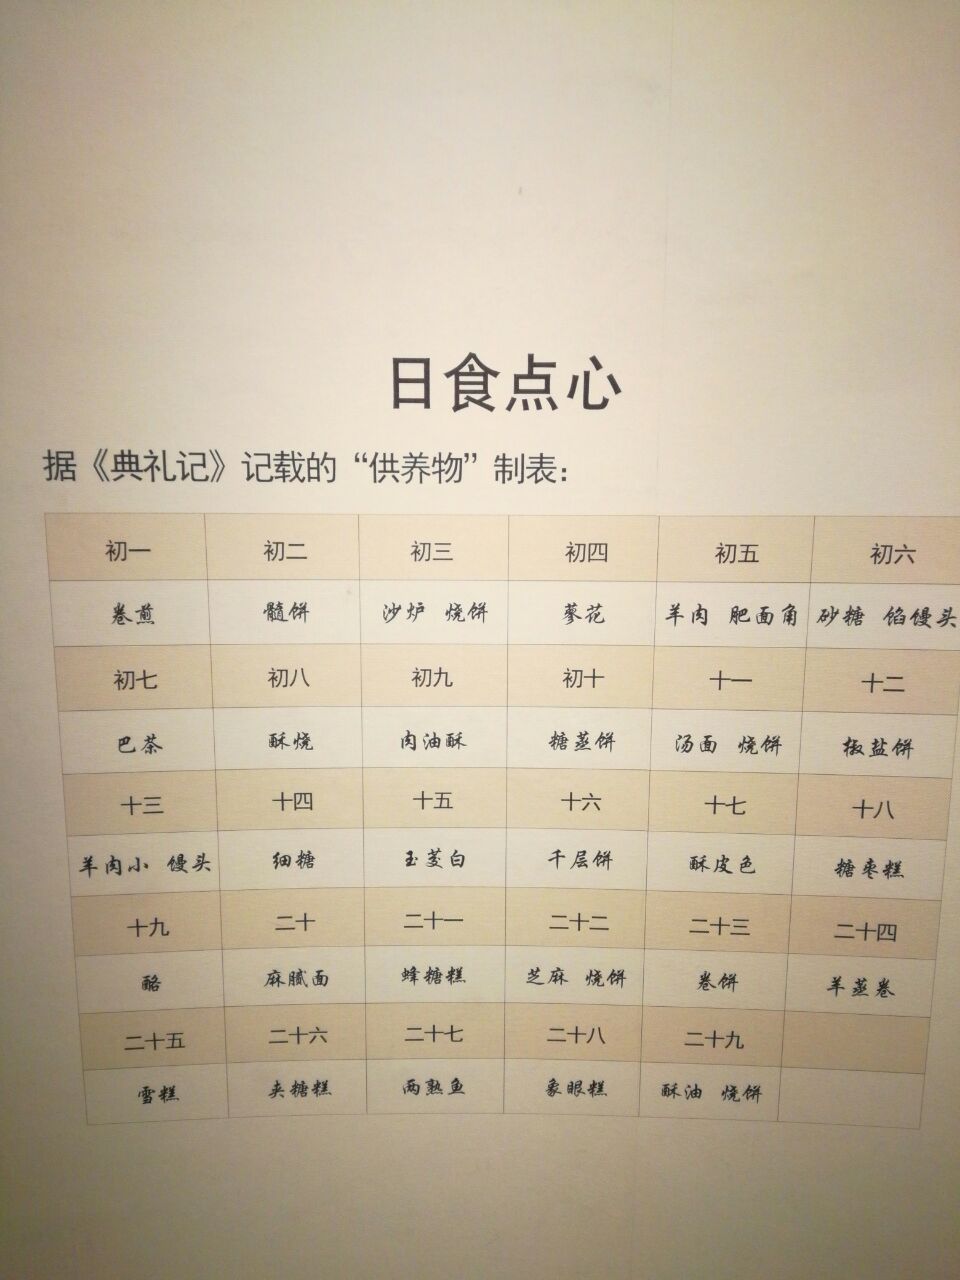 日食点心
据《典礼记》记载的“供养物”制表：
初一 初二 初三 初四 初五 初六
卷煎 髓饼 沙炉 烧饼 蓼花 羊肉 肥面角 砂糖 馅馒头
初七 初八 初九 初十 十一 十二
巴茶 酥烧 肉油酥 糖蒸饼 汤面 烧饼 椒盐饼
十三 十四 十五 十六 十七 十八
羊肉小 馒头 细糖 玉茭白 千层饼 酥皮色 糖枣糕
十九 二十 二十一 二十二 二十三 二十四
酪 麻腻面 蜂糖糕 芝麻 烧饼 卷饼 羊蒸卷
二十五 二十六 二十七 二十八 二十九
雪糕 夹糖糕 两熟鱼 象眼糕 酥油 烧饼